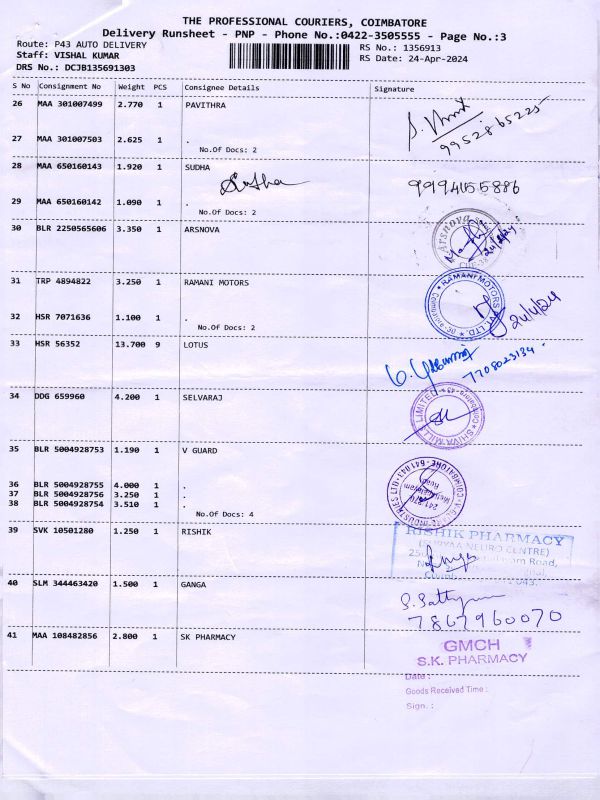 THE PROFESSIONAL COURIERS, COIMBATORE
Delivery Runsheet - PNP - Phone No.:0422-3505555 - Page No.:3
Route: P43 AUTO DELIVERY
RS No.: 1356913
Staff: VISHAL KUMAR
RS Date: 24-Apr-2024
DRS No.: DCJB135691303
S No Consignment No Weight PCS Consignee Details Signature
26 MAA 301007499 2.770 1 PAVITHRA
9952865225
27 MAA 301007503 2.625 1 .
No.Of Docs: 2
28 MAA 650160143 1.920 1 SUDHA
Sudha 9994155886
29 MAA 650160142 1.090 1 .
No.Of Docs: 2
30 BLR 2250565606 3.350 1 ARSNOVA
Arsnova
24/4/24
31 TRP 4894822 3.250 1 RAMANI MOTORS
RAMANI MOTORS PVT. LTD.
24/4/24
32 HSR 7071636 1.100 1 .
No.Of Docs: 2
33 HSR 56352 13.700 9 LOTUS
7708023134
34 DDG 659960 4.200 1 SELVARAJ
SHIVA MILLS LIMITED
35 BLR 5004928753 1.190 1 V GUARD
36 BLR 5004928755 4.000 1 .
37 BLR 5004928756 3.250 1 .
38 BLR 5004928754 3.510 1 .
No.Of Docs: 4
COIMBATORE-641 043
39 SVK 10501280 1.250 1 RISHIK
RISHIK PHARMACY
NEURO CENTRE)
Road,
40 SLM 344463420 1.500 1 GANGA
7867960070
41 MAA 108482856 2.800 1 SK PHARMACY
GMCH
S.K. PHARMACY
Date :
Goods Received Time :
Sign. :